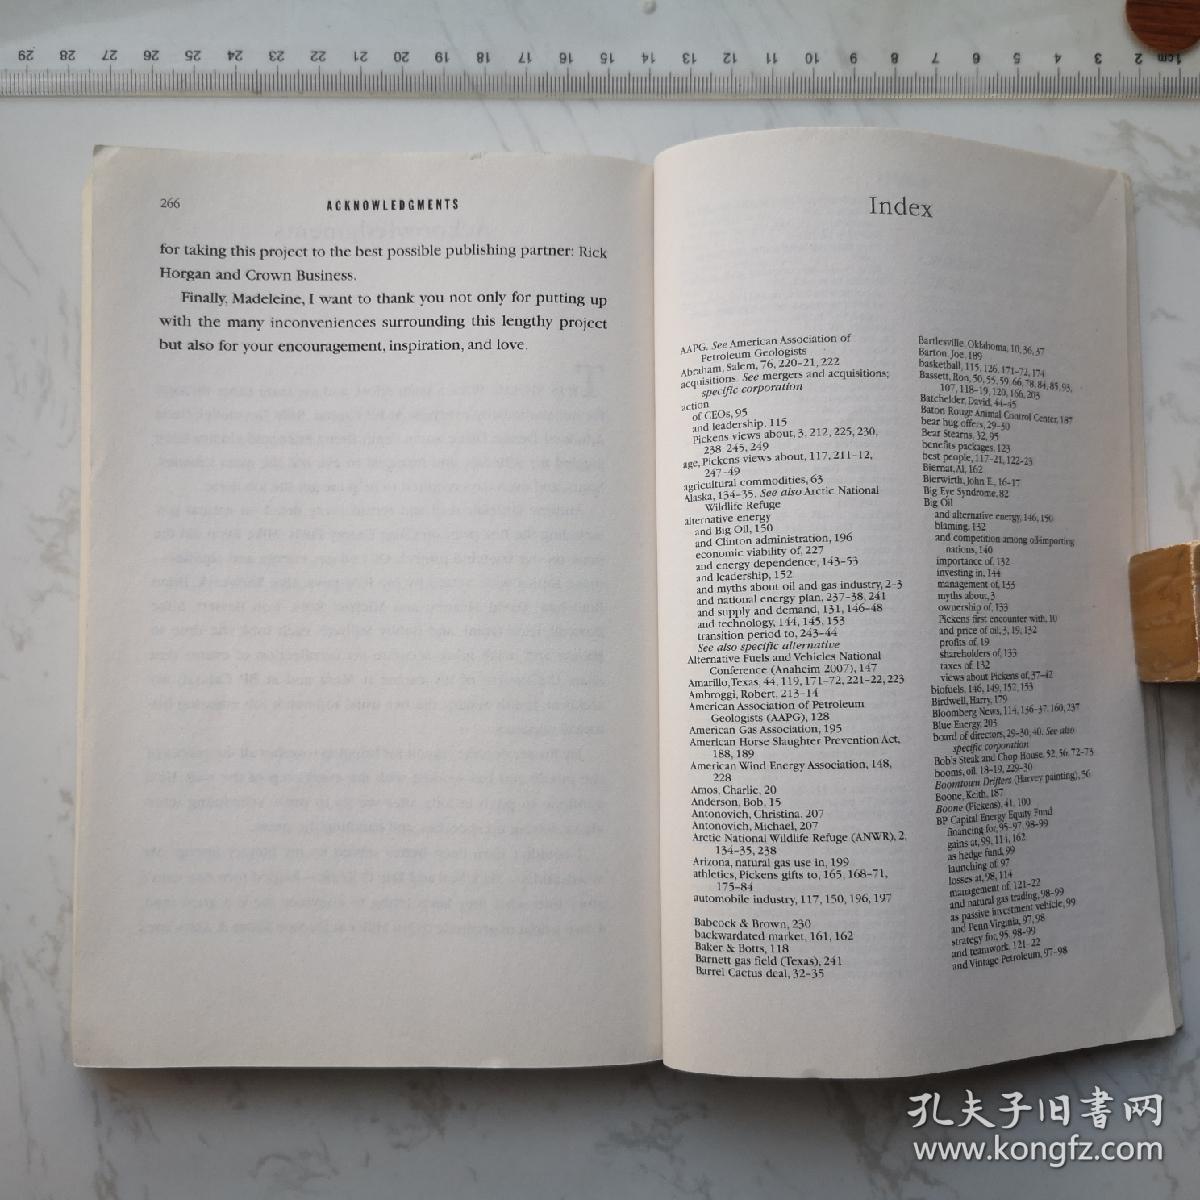 266
ACKNOWLEDGMENTS
for taking this project to the best possible publishing partner: Rick
Horgan and Crown Business.
Finally, Madeleine, I want to thank you not only for putting up
with the many inconveniences surrounding this lengthy project
but also for your encouragement, inspiration, and love.
Index
AAPG. See American Association of
Petroleum Geologists
Abraham, Salem, 76, 220–21, 222
acquisitions. See mergers and acquisitions;
specific corporation
action
of CEOs, 95
and leadership, 115
Pickens views about, 3, 212, 225, 230,
238–245, 249
age, Pickens views about, 117, 211–12,
247–49
agricultural commodities, 63
Alaska, 134–35. See also Arctic National
Wildlife Refuge
alternative energy
and Big Oil, 150
and Clinton administration, 196
economic viability of, 227
and energy dependence, 143–53
and leadership, 152
and myths about oil and gas industry, 2–3
and national energy plan, 237–38, 241
and supply and demand, 131, 146–48
and technology, 144, 145, 153
transition period to, 243–44
See also specific alternative
Alternative Fuels and Vehicles National
Conference (Anaheim 2007), 147
Amarillo, Texas, 44, 119, 171–72, 221–22, 223
Ambroggi, Robert, 213–14
American Association of Petroleum
Geologists (AAPG), 128
American Gas Association, 195
American Horse Slaughter Prevention Act,
188, 189
American Wind Energy Association, 148,
228
Amos, Charlie, 20
Anderson, Bob, 15
Antonovich, Christina, 207
Antonovich, Michael, 207
Arctic National Wildlife Refuge (ANWR), 2,
134–35, 238
Arizona, natural gas use in, 199
athletics, Pickens gifts to, 165, 168–71,
175–84
automobile industry, 117, 150, 196, 197
Babcock & Brown, 230
backwardated market, 161, 162
Baker & Botts, 118
Barnett gas field (Texas), 241
Barrel Cactus deal, 32–35
Bartlesville, Oklahoma, 10, 36, 37
Barton, Joe, 189
basketball, 115, 126, 171–72, 174
Bassett, Ron, 50, 55, 59, 66, 78, 84, 85, 93,
107, 118–19, 120, 166, 203
Batchelder, David, 44–45
Baton Rouge Animal Control Center, 187
bear hug offers, 29–30
Bear Stearns, 32, 95
benefits packages, 123
best people, 117–21, 122–23
Biernat, Al, 162
Bierwirth, John E., 16–17
Big Eye Syndrome, 82
Big Oil
and alternative energy, 146, 150
blaming, 132
and competition among oil-importing
nations, 140
importance of, 132
investing in, 144
management of, 133
myths about, 3
ownership of, 133
Pickens first encounter with, 10
and price of oil, 3, 19, 132
profits of, 19
shareholders of, 133
taxes of, 132
views about Pickens of, 37–42
biofuels, 146, 149, 152, 153
Birdwell, Harry, 179
Bloomberg News, 114, 136–37, 160, 237
Blue Energy, 203
board of directors, 29–30, 40. See also
specific corporation
Bob's Steak and Chop House, 52, 56, 72–73
booms, oil, 18–19, 229–30
Boomtown Drifters (Harvey painting), 56
Boone, Keith, 187
Boone (Pickens), 41, 100
BP Capital Energy Equity Fund
financing for, 95–97, 98–99
gains at, 99, 114, 162
as hedge fund, 99
launching of, 97
losses at, 98, 114
management of, 121–22
and natural gas trading, 98–99
as passive investment vehicle, 99
and Penn Virginia, 97, 98
strategy for, 95, 98–99
and teamwork, 121–22
and Vintage Petroleum, 97–98
孔夫子旧书网
www.kongfz.com